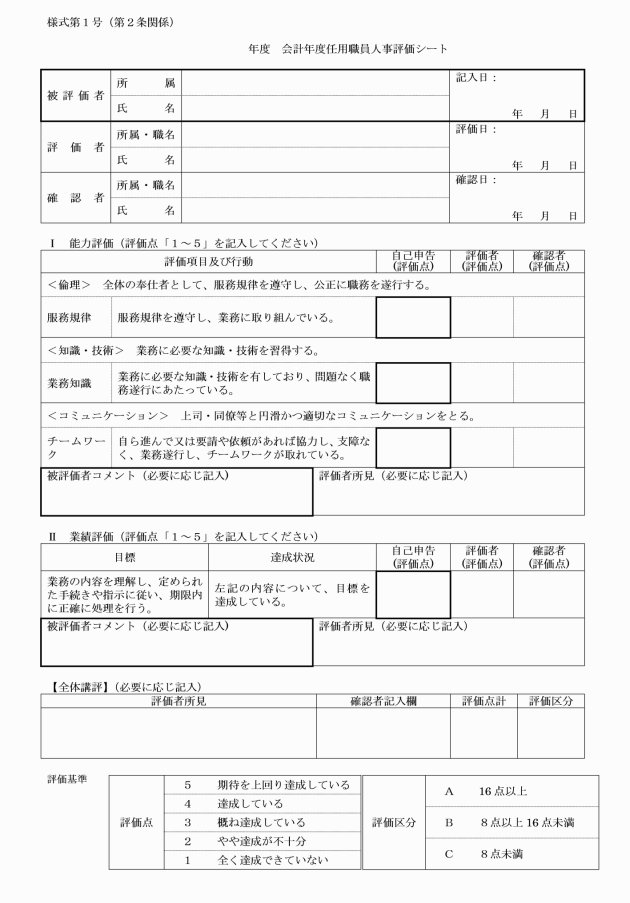 様式第１号（第２条関係）
年度　会計年度任用職員人事評価シート
被評価者
所　　属
記入日：
氏　　名
年　月　日
評価者
所属・職名
評価日：
氏　　名
年　月　日
確認者
所属・職名
確認日：
氏　　名
年　月　日
Ⅰ　能力評価（評価点「１～５」を記入してください）
評価項目及び行動
自己申告
（評価点）
評価者
（評価点）
確認者
（評価点）
＜倫理＞　全体の奉仕者として、服務規律を遵守し、公正に職務を遂行する。
服務規律
服務規律を遵守し、業務に取り組んでいる。
＜知識・技術＞　業務に必要な知識・技術を習得する。
業務知識
業務に必要な知識・技術を有しており、問題なく職
務遂行にあたっている。
＜コミュニケーション＞　上司・同僚等と円滑かつ適切なコミュニケーションをとる。
チームワー
ク
自ら進んで又は要請や依頼があれば協力し、支障な
く、業務遂行し、チームワークが取れている。
被評価者コメント（必要に応じ記入）
評価者所見（必要に応じ記入）
Ⅱ　業績評価（評価点「１～５」を記入してください）
目標
達成状況
自己申告
（評価点）
評価者
（評価点）
確認者
（評価点）
業務の内容を理解し、定められ
た手続きや指示に従い、期限内
に正確に処理を行う。
左記の内容について、目標を
達成している。
被評価者コメント（必要に応じ記入）
評価者所見（必要に応じ記入）
【全体講評】（必要に応じ記入）
評価者所見
確認者記入欄
評価点計
評価区分
評価基準
評価点
5　期待を上回り達成している
4　達成している
3　概ね達成している
2　やや達成が不十分
1　全く達成できていない
評価区分
A　16点以上
B　8点以上16点未満
C　8点未満